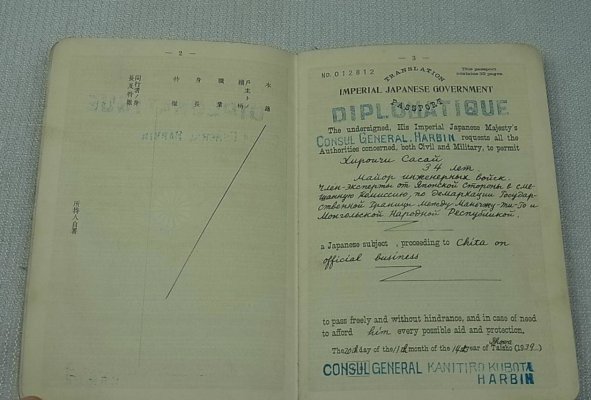 — 2 —
本籍
戸主トノ續柄
職業
身長
特徴
同行者ノ身長及特徴
所持人自署
— 3 —
No. 012812
TRANSLATION
This passport
contains 32 pages
IMPERIAL JAPANESE GOVERNMENT
PASSPORT
DIPLOMATIQUE
The undersigned, His Imperial Japanese Majesty's
CONSUL GENERAL, HARBIN requests all the
Authorities concerned, both Civil and Military, to permit
Хироичи Сасай
34 лет
Майор инженерных войск.
Член-эксперты от Японской Стороны в сме-
шанную Комиссию, по Демаркации Государ-
ственной Границы между Маньчжу-Ти-Го и
Монгольской Народной Республикой.
a Japanese subject, proceeding to Chita on
official business
to pass freely and without hindrance, and in case of need
to afford him every possible aid and protection.
The 20th day of the 11th month of the 14th year of Taisho Showa (1939)
CONSUL GENERAL KANITIRO KUBOTA
HARBIN